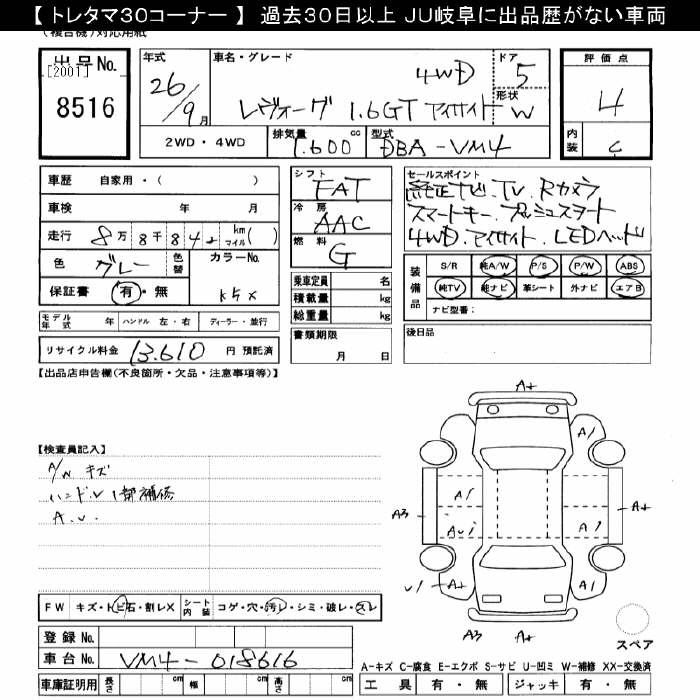 【 トレタマ30コーナー 】 過去30日以上 JU岐阜に出品歴がない車両
(複合機)対応用紙
出品No.
[2001]
8516
年式
26/9月
車名・グレード
4WD
レヴォーグ 1.6GT アイサイト
ドア
5
形状
W
評価点
4
内装
C
2WD・4WD
排気量 cc
1.600
型式
DBA-VM4
車歴 自家用・( )
車検 年 月
走行 8万8千84 km マイル( )
色 グレー
色替
カラーNo.
K5X
保証書 有・無
モデル年式 年 ハンドル 左・右 ディーラー・並行
リサイクル料金 13.610 円 預託済
シフト
FAT
冷房
AAC
燃料
G
乗車定員 名
積載量 kg
総重量 kg
書類期限
月 日
セールスポイント
純正ナビ.TV.Rカメラ
スマートキー.プッシュスタート
4WD.アイサイト.LEDヘッド
装備品
S/R 純A/W P/S P/W ABS
純TV 純ナビ 革シート 外ナビ エアB
ナビ型番:
後日品
【出品店申告欄(不良箇所・欠品・注意事項等)】
【検査員記入】
A/W キズ
ハンドル 1部補修
A.U.
A+
A1
A1
A3
A+
AU1
A1
U1
A+
A+
A3
A+
FW キズ・トビ石・割レX
シート内装 コゲ・穴・汚レ・シミ・破レ・スレ
スペア
登録No.
車台No. VM4-018616
A-キズ C-腐食 E-エクボ S-サビ U-凹ミ W-補修 XX-交換済
車庫証明用 長さ cm 幅 cm 高さ cm
工具 有・無 ジャッキ 有・無